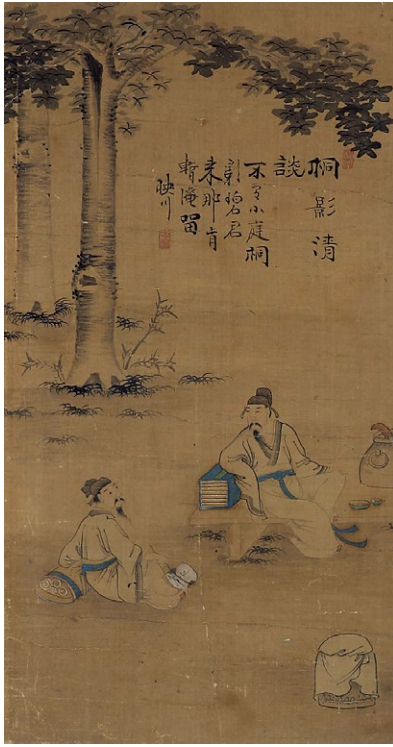 桐影清
談
不小庭桐
影碧君
来那肯
暫淹留
映川